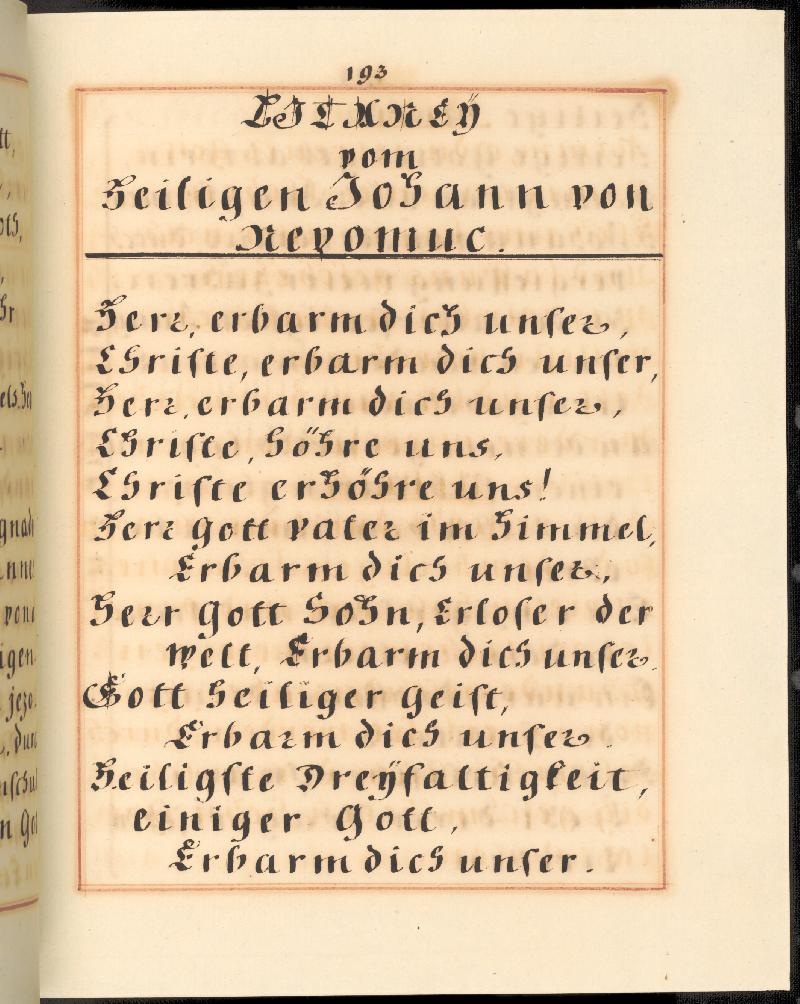 193
LITANEY
vom
Heiligen Johann von
Nepomuc.
Herr, erbarm dich unser,
Christe, erbarm dich unser,
Herr, erbarm dich unser,
Christe, höhre uns,
Christe erhöhre uns!
Herr Gott vater im Himmel,
Erbarm dich unser,
Herr Gott Sohn, Erloser der
welt, Erbarm dich unser.
Gott heiliger Geist,
Erbarm dich unser.
Heiligste Dreyfaltigkeit,
einiger Gott,
Erbarm dich unser.